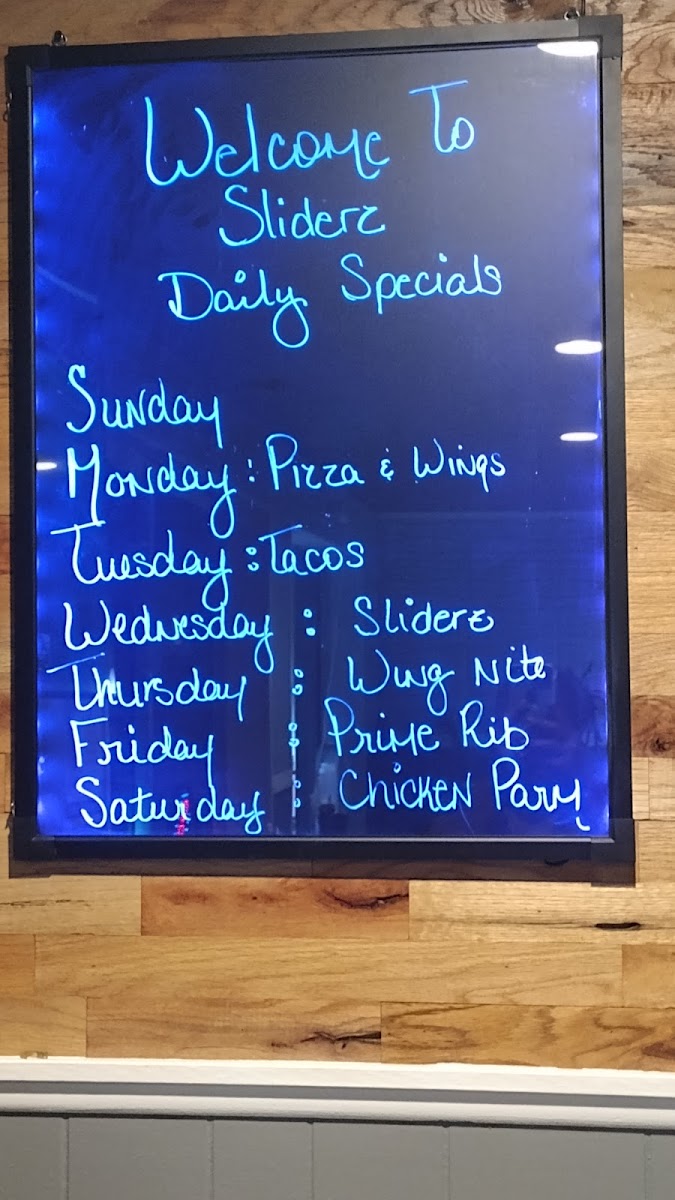 Welcome To
Sliderz
Daily Specials
Sunday
Monday: Pizza & Wings
Tuesday: Tacos
Wednesday: Sliderz
Thursday: Wing Nite
Friday: Prime Rib
Saturday: Chicken Parm